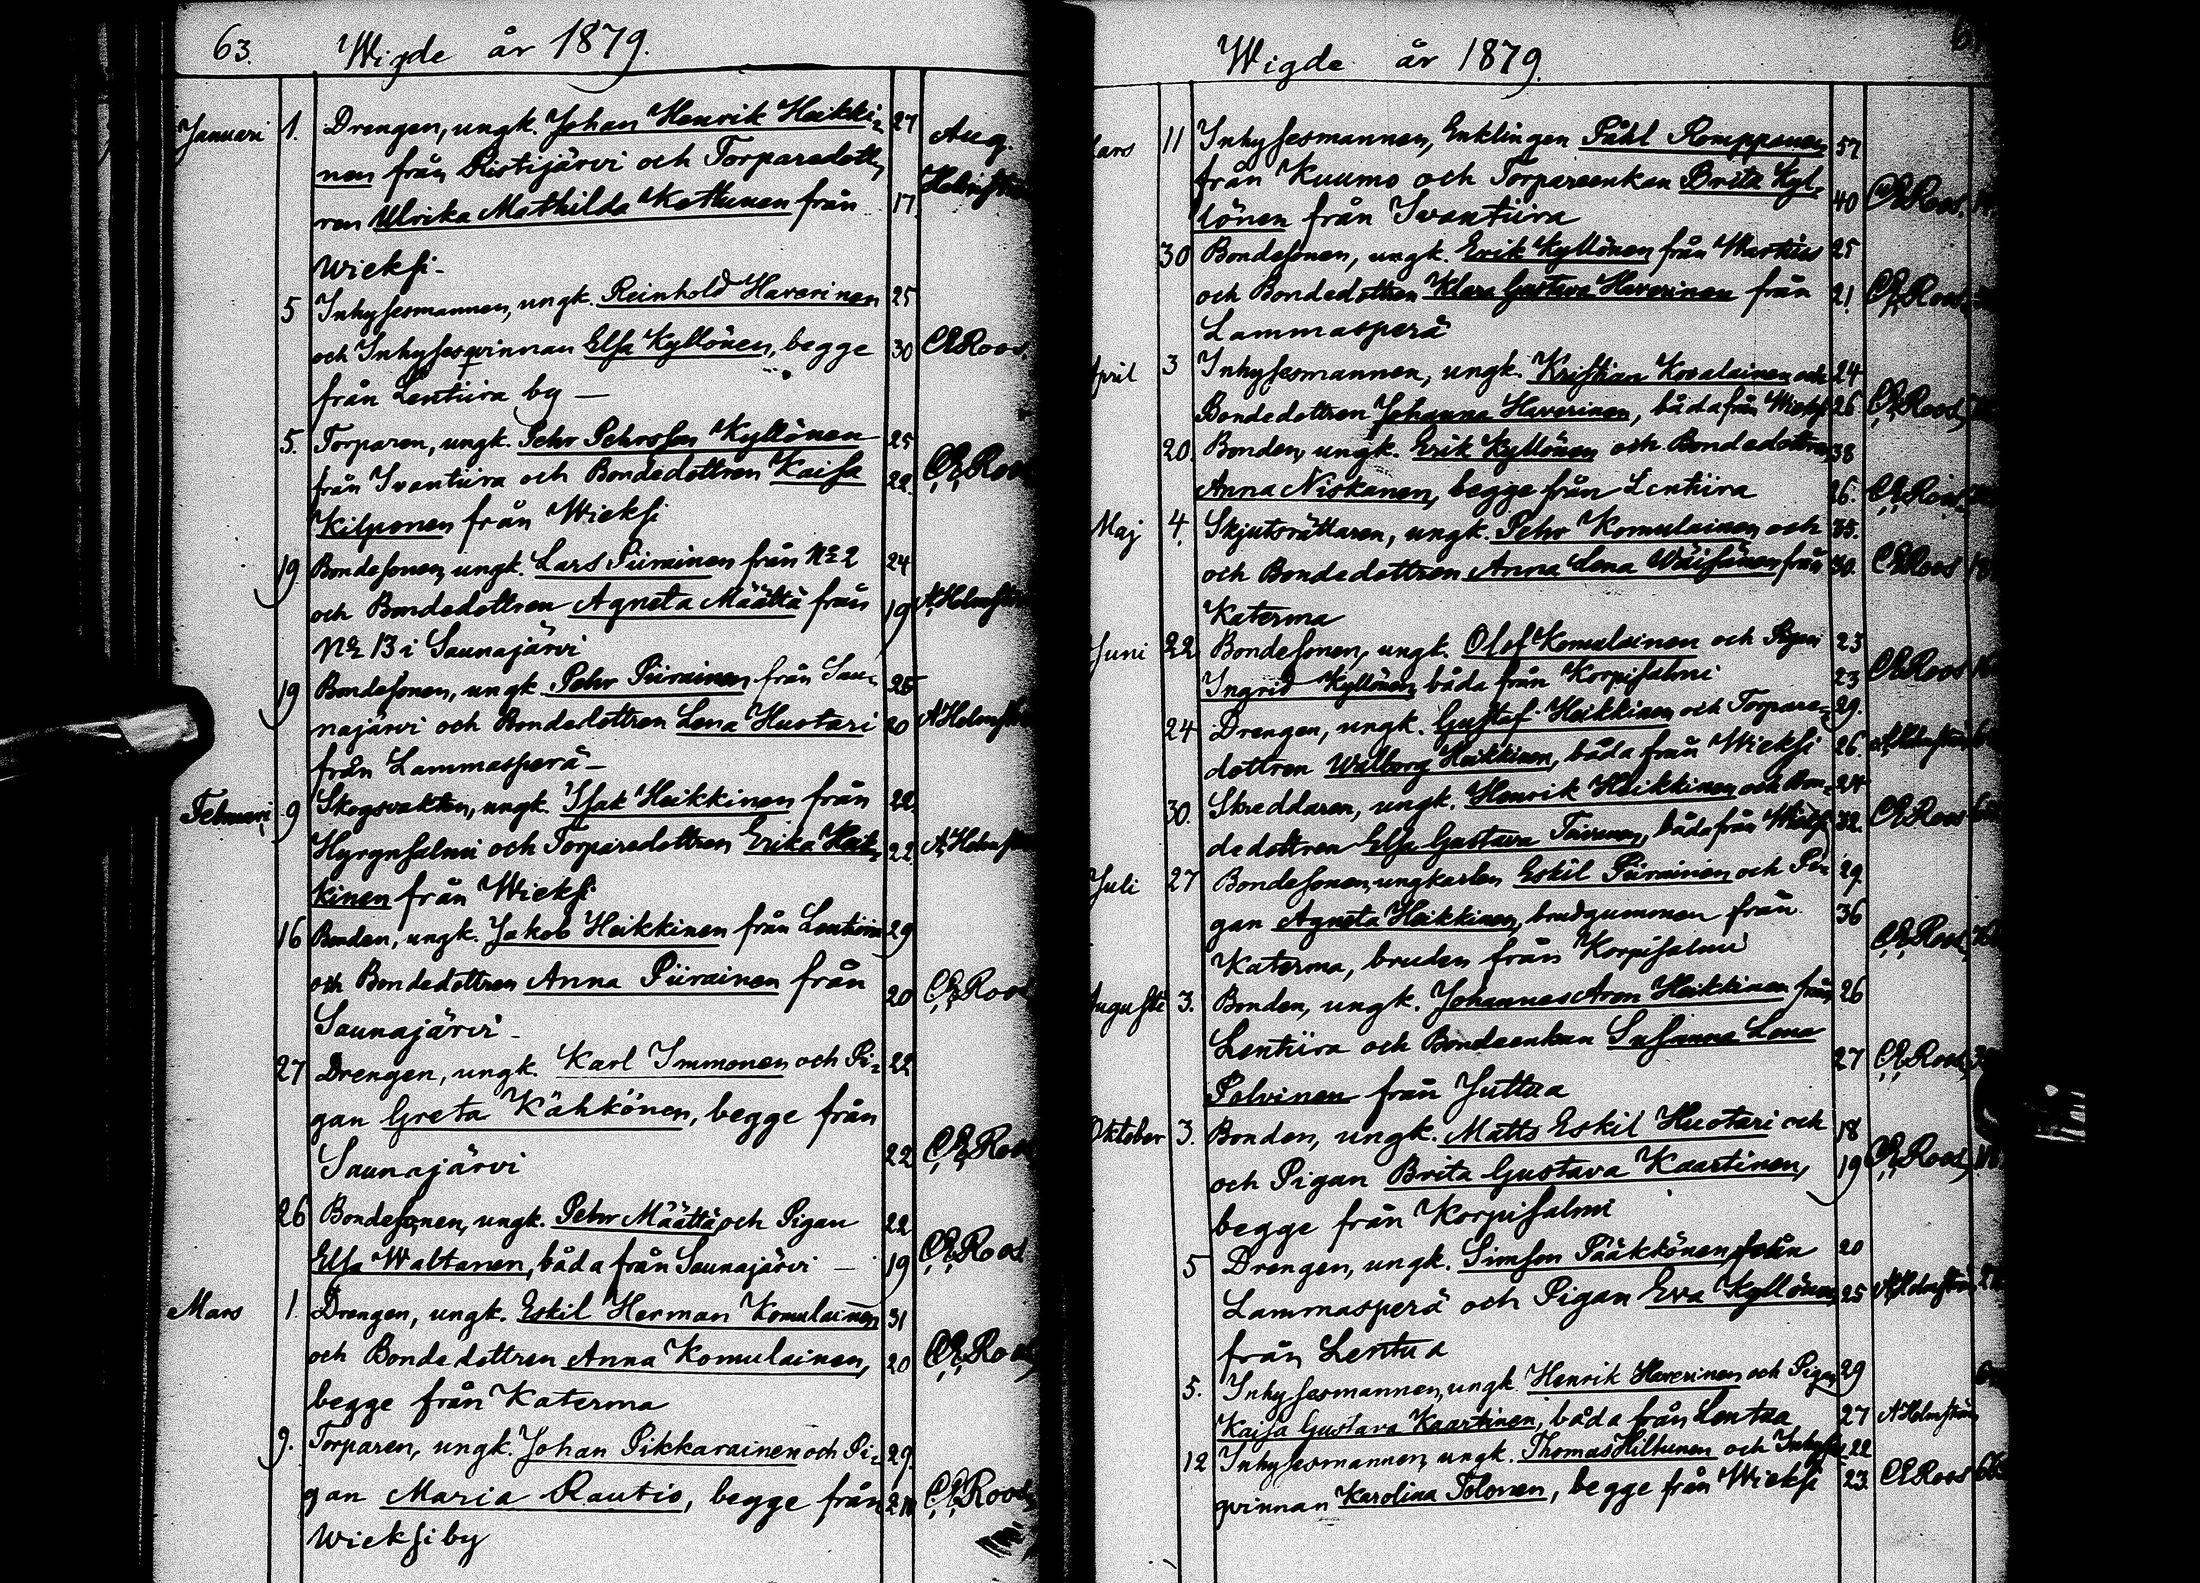 63. Wigde år 1879.
Januari 1. Drengen, ungk. Johan Henrik Heikki= 27
nen från Ristijärvi och Torparedott= Aug.
ren Ulrika Mathilda Kettunen från 17. Holmström
Wieksi -
5 Inhysesmannen, ungk. Reinhold Haverinen 25
och Inhysesqvinnan Elsa Kyllönen, begge 30 CERoos.
från Lentiira by —
5. Torparen, ungk. Pehr Pehrsson Kyllönen 25
från Ivantiira och Bondedottren Kaisa 22. C,E,Roos
Kilponen från Wieksi
19 Bondesonen, ungk. Lars Piirainen från No 2 24
och Bondedottren Agneta Määttä från 19 A,Holmström
No 13 i Saunajärvi
19 Bondesonen, ungk. Pehr Piirainen från Sau=
najärvi och Bondedottren Lena Huotari 20 A,Holmström
från Lammasperä —
Februari 9 Skogsvakten, ungk. Isak Heikkinen från 22.
Hyrynsalmi och Torparedottren Erika Heik= 22 A,Holmström
kinen från Wieksi
16 Bonden, ungk. Jakob Heikkinen från Lentiira 29
och Bondedottren Anna Piirainen från 20 C,E,Roos
Saunajärvi -
27 Drengen, ungk. Karl Immonen och Pi= 22
gan Greta Kähkönen, begge från
Saunajärvi 22 C,E,Roos
26 Bondesonen, ungk. Pehr Määttä och Pigan 22
Elsa Waltanen, båda från Saunajärvi — 19 C,E,Roos
Mars 1. Drengen, ungk. Eskil Herman Komulainen 31
och Bondedottren Anna Komulainen, 20 C,E,Roos
begge från Katerma
9. Torparen, ungk. Johan Pikkarainen och Pi= 29.
gan Maria Rautio, begge från C,E,Roos
Wieksi by
Wigde år 1879
Mars 11 Inhysesmannen, Enklingen Påhl Romppanen 57
från Kuumo och Torpareenkan Brita Kyl= 40 CERoos.
lönen från Ivantiira
30 Bondesonen, ungk. Erik Kyllönen från Wartius 25
och Bondedottren Klara Gustava Haverinen från 21 C,E,Roos
Lammasperä
April 3 Inhysesmannen, ungk. Kristian Kovalainen och 24
Bondedottren Johanna Haverinen, båda från Wieksi 26 C,E,Roos
20. Bonden, ungk. Erik Kyllönen och Bondedottren 38
Anna Niskanen, begge från Lentiira 26. C,E,Roos
Maj 4. Skjutsrättaren, ungk. Pehr Komulainen och 35.
och Bondedottren Anna Lena Wäisänen från 30. CERoos
Katerma
Juni 22 Bondesonen, ungk. Olof Komulainen och Pigan 23
Ingrid Kyllönen båda från Korpisalmi 23 CERoos
24 Drengen, ungk. Gustaf Heikkinen och Torpare= 29.
dottren Walborg Heikkinen, båda från Wieksi 26. A,Holmström
30. Skreddaren, ungk. Henrik Heikkinen och Bon= 24
dedottren Elsa Gustava Toivonen, båda från Wieksi 32. CERoos
Juli 27 Bondesonen, ungkarlen Eskil Piirainen och Pi= 29
gan Agneta Heikkinen, brudgummen från 36
Katerma, bruden från Korpisalmi C,E,Roos
Augusti 3. Bonden, ungk. Johannes Aron Heikkinen från 26
Lentiira och Bondeenkan Susanna Lena
Polvinen från Juttua 27 C,E,Roos
Oktober 3. Bonden, ungk. Matts Eskil Huotari och 18
och Pigan Brita Gustava Kaartinen, 19 C,E,Roos
begge från Korpisalmi
5 Drengen, ungk. Simson Pääkkönen, från 20
Lammasperä och Pigan Eva Kyllönen 25 A,Holmström
från Lentua
5. Inhysesmannen, ungk. Henrik Haverinen och Pigan 29
Kaisa Gustava Kaartinen, båda från Lentua 27 AHolmström
12 Inhysesmannen, ungk. Thomas Hiltunen och Inhyses= 22
qvinnan Karolina Tolonen, begge från Wieksi 23. CERoos